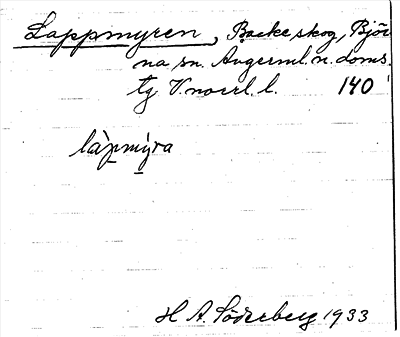 Lappmyren, Backe skog, Björ
na sn. Ångerml. n. doms.
tg V.norrl. l. 140
làpmy̠ra
H A. Söderberg 1933